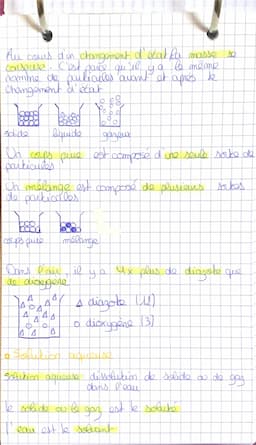 Au cours d'un changement d'état la masse se
conserve. C'est parce qu'il y a le même
nombre de particules avant et après le
changement d'état
solide liquide gazeux
Un corps pur est composé d'une seule sorte de
particules
Un mélange est composé de plusieurs sortes
de particules
corps pur mélange
Dans l'air, il y a 4x plus de diazote que
de dioxygène
△ diazote (12)
o dioxygène (3)
Solution aqueuse
Solution aqueuse dissolution de solide ou de gaz
dans l'eau
le solide ou le gaz est le soluté
l'eau est le solvant